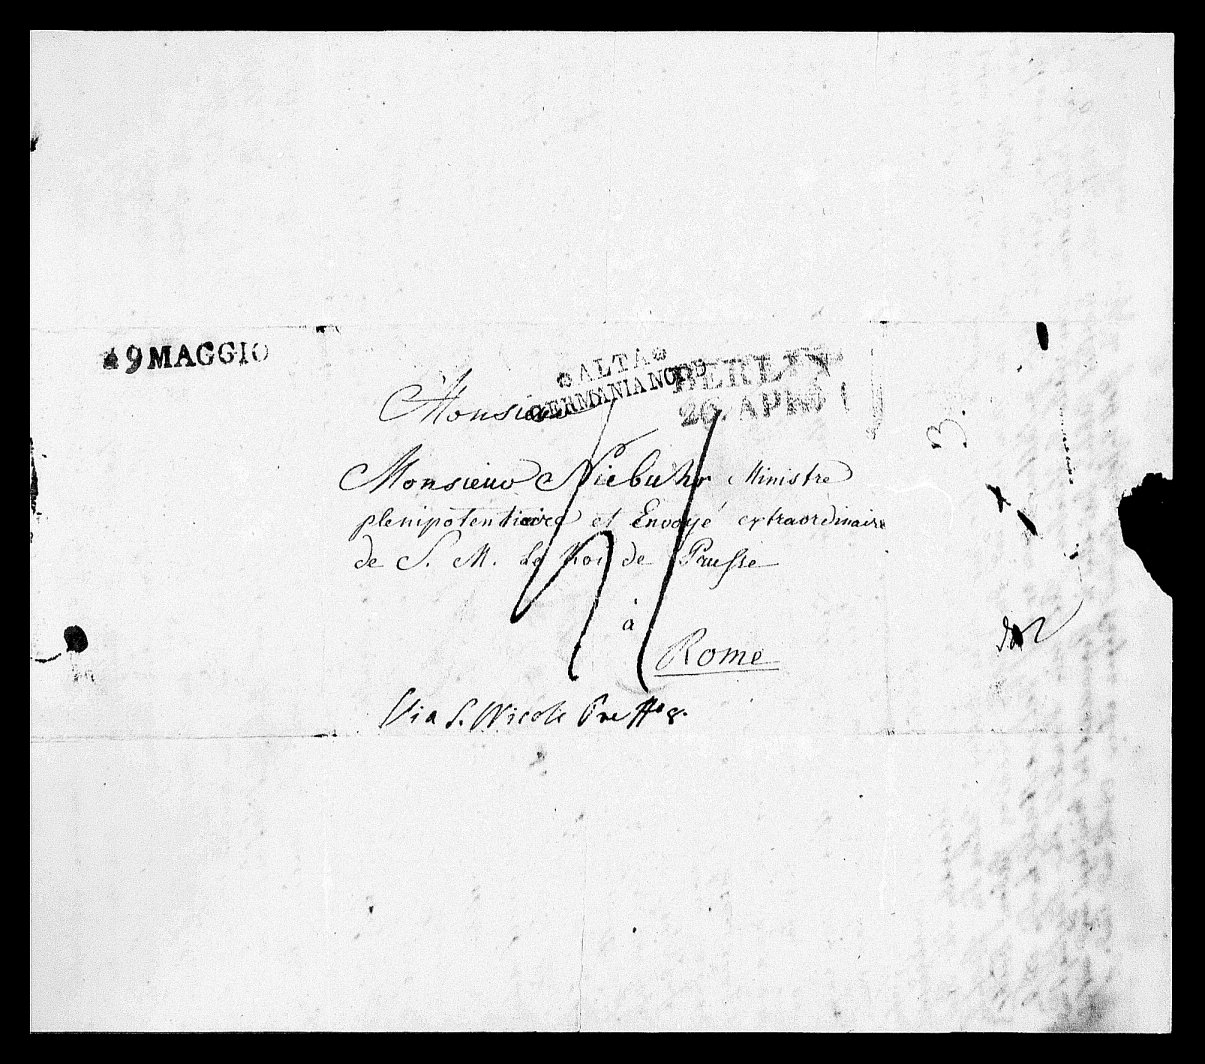 9 MAGGIO
ALTA
GERMANIA NORD
BERLIN
26. APR
Monsieur
Monsieur Niebuhr Ministre
plenipotentiaire et Envoyé extraordinaire
de S. M. Le Roi de Prusse
à
Rome
Via S.
3.